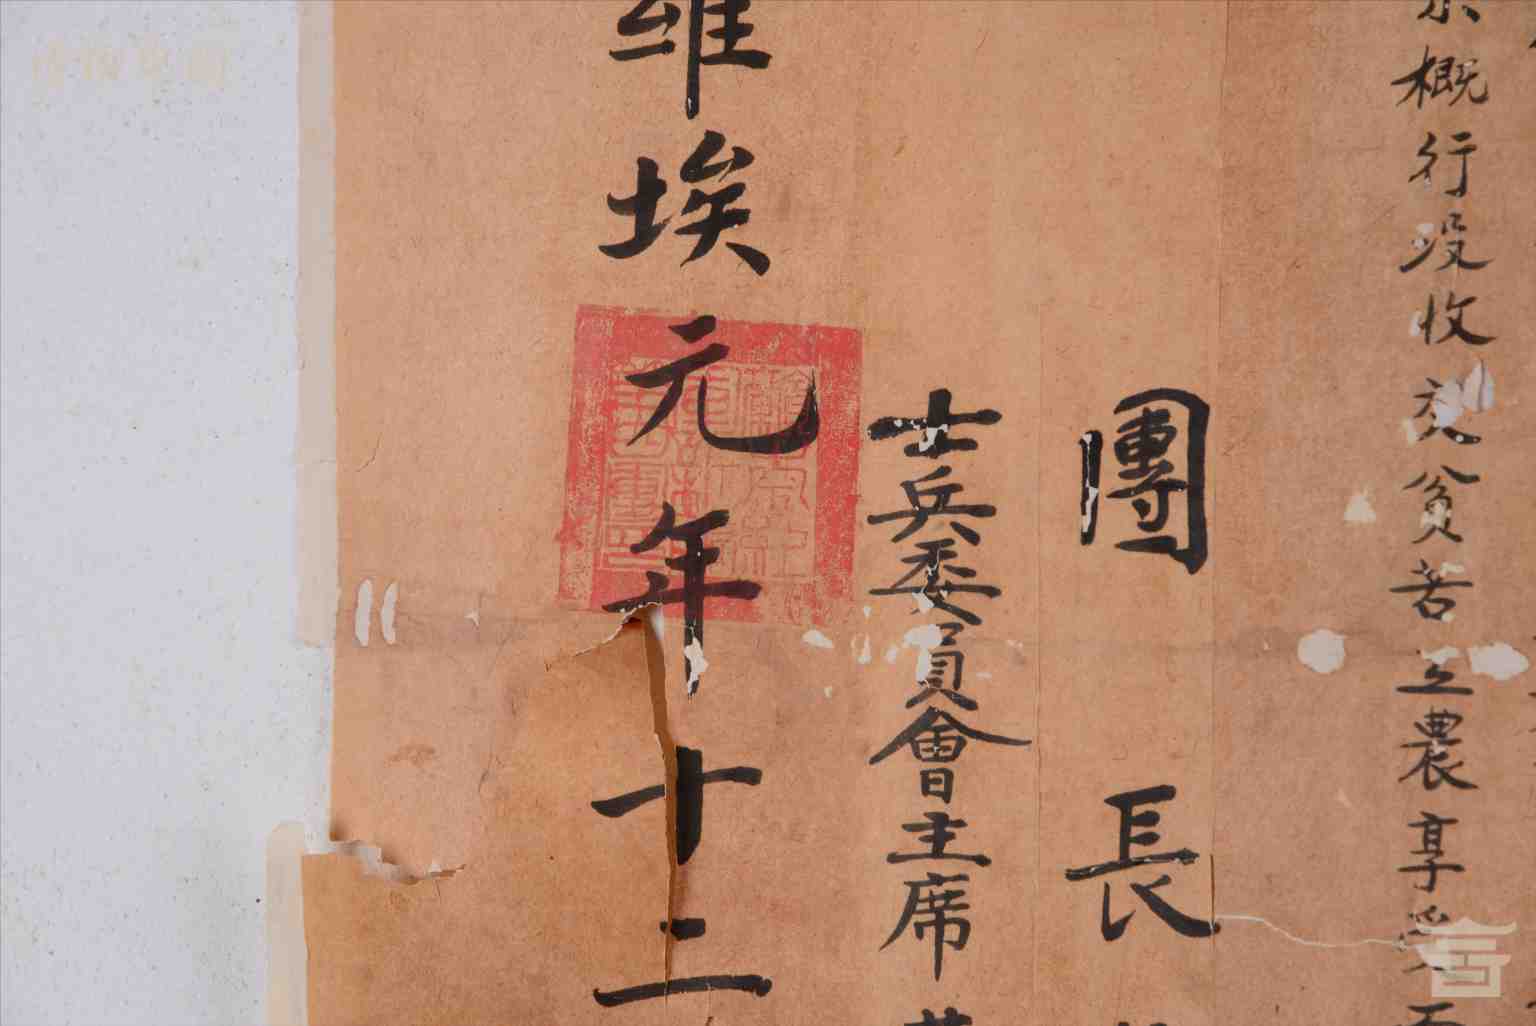 概行没收交貧苦工農享受
團長
士兵委員會主席
維埃元年十二